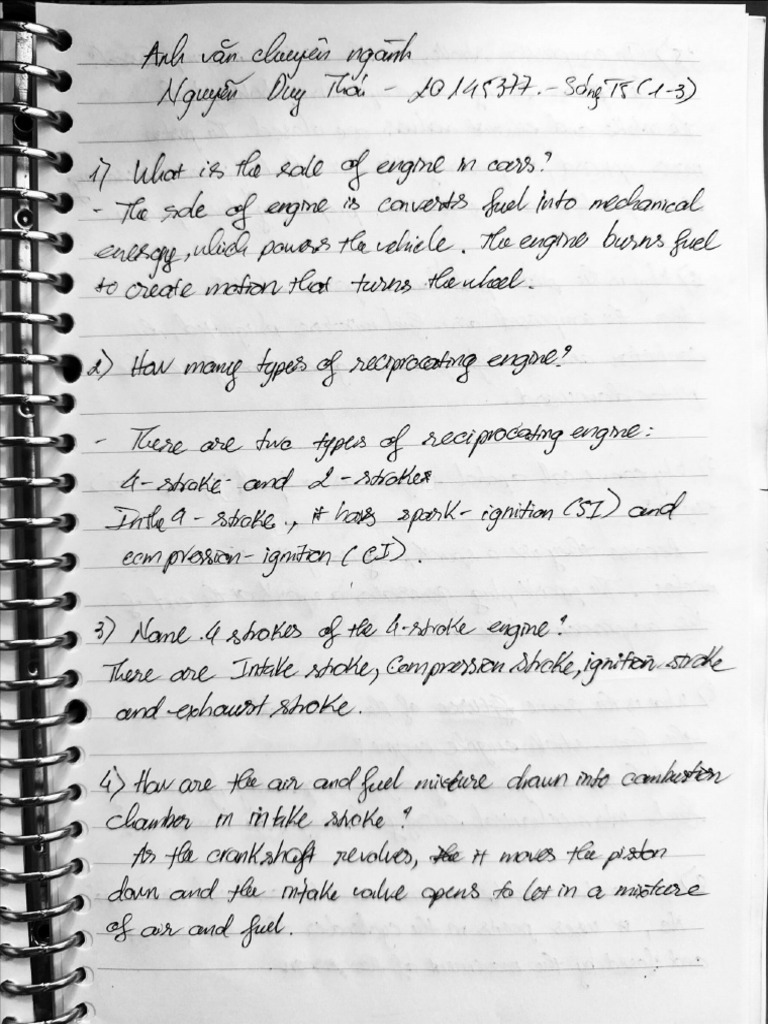 Anh văn chuyên ngành
Nguyễn Duy Thái - 20145377. - Sáng T5 (1-3)
1) What is the role of engine in cars?
- The role of engine is converts fuel into mechanical
energy, which powers the vehicle. The engine burns fuel
to create motion that turns the wheel.
2) How many types of reciprocating engine?
- There are two types of reciprocating engine:
4-stroke and 2-stroke
In the 4-stroke, it has spark-ignition (SI) and
compression-ignition (CI).
3) Name 4 strokes of the 4-stroke engine?
There are Intake stroke, Compression stroke, ignition stroke
and exhaust stroke.
4) How are the air and fuel mixture drawn into combustion
chamber in intake stroke?
As the crankshaft revolves, it moves the piston
down and the intake valve opens to let in a mixture
of air and fuel.